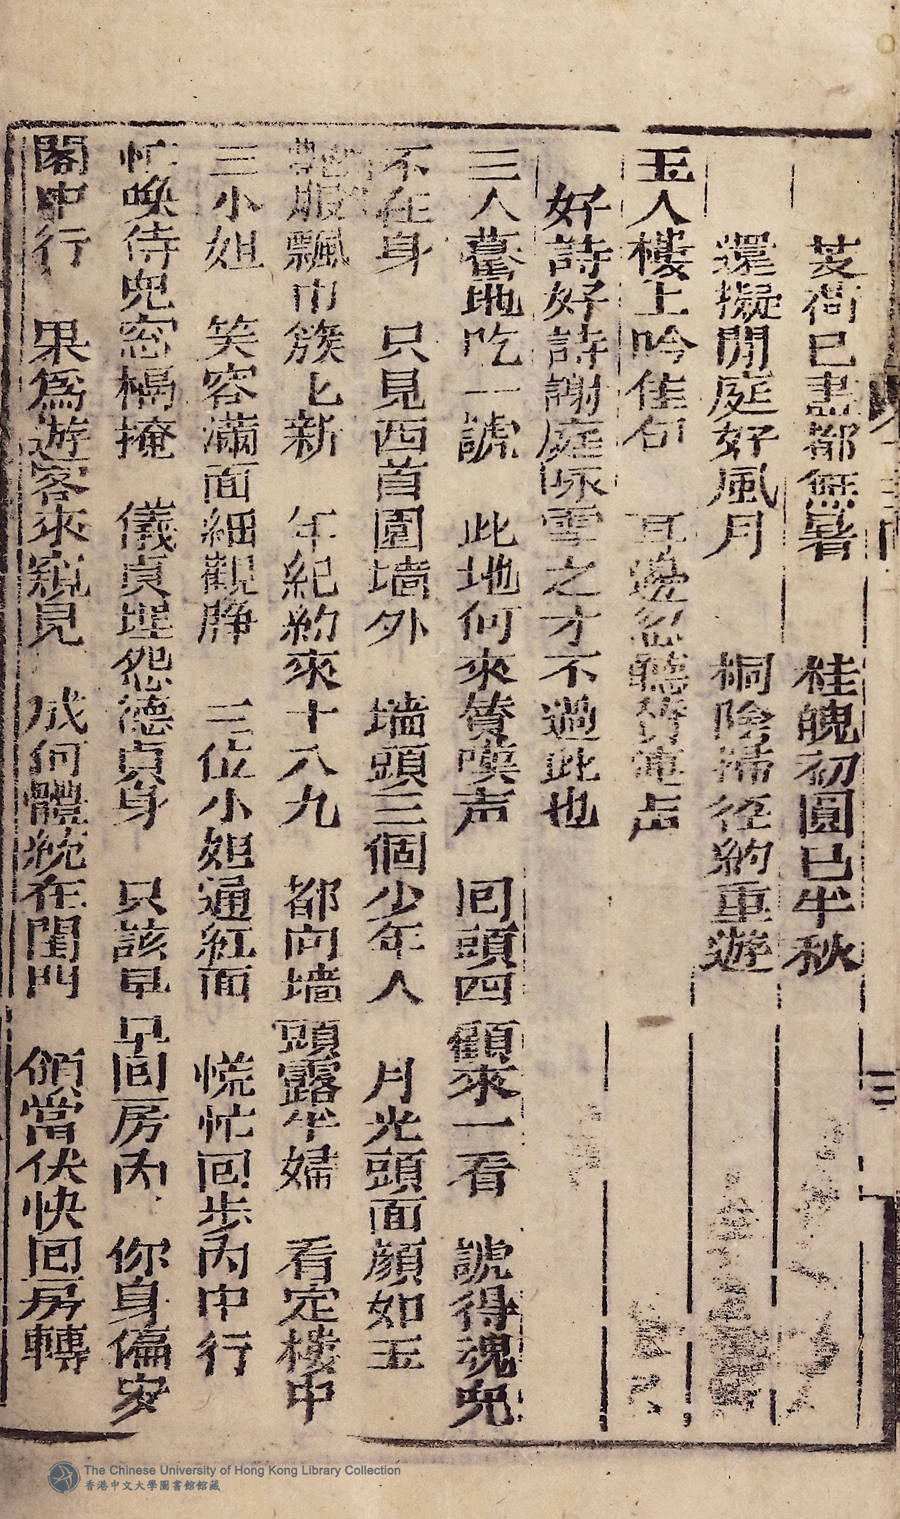 芰荷已盡都無暑　桂魄初圓已半秋
還擬閒庭好風月　桐陰掃徑約重遊
玉人樓上吟佳句　耳邊忽聽賛声
好詩好詩謝庭咏雪之才不過此也
三人驀地吃一諕　此地何來賛嘆声　回頭四顧來一看　諕得魂兜
不在身　只見西首園墙外　墙頭三個少年人　月光頭面顔如玉
艶服飄巾簇七新　年紀約來十八九　都向墙頭露半婦　看定樓中
三小姐　笑容滿面細觀睁　三位小姐通紅面　慌忙回步内中行
忙喚侍兜窓槅掩　儀貞埋怨德貞身　只該早早回房内　你身偏安
閣中行　果為遊客來窺見　成何體統在閨門　俏當伏快回房轉
三
The Chinese University of Hong Kong Library Collection
香港中文大學圖書館館藏